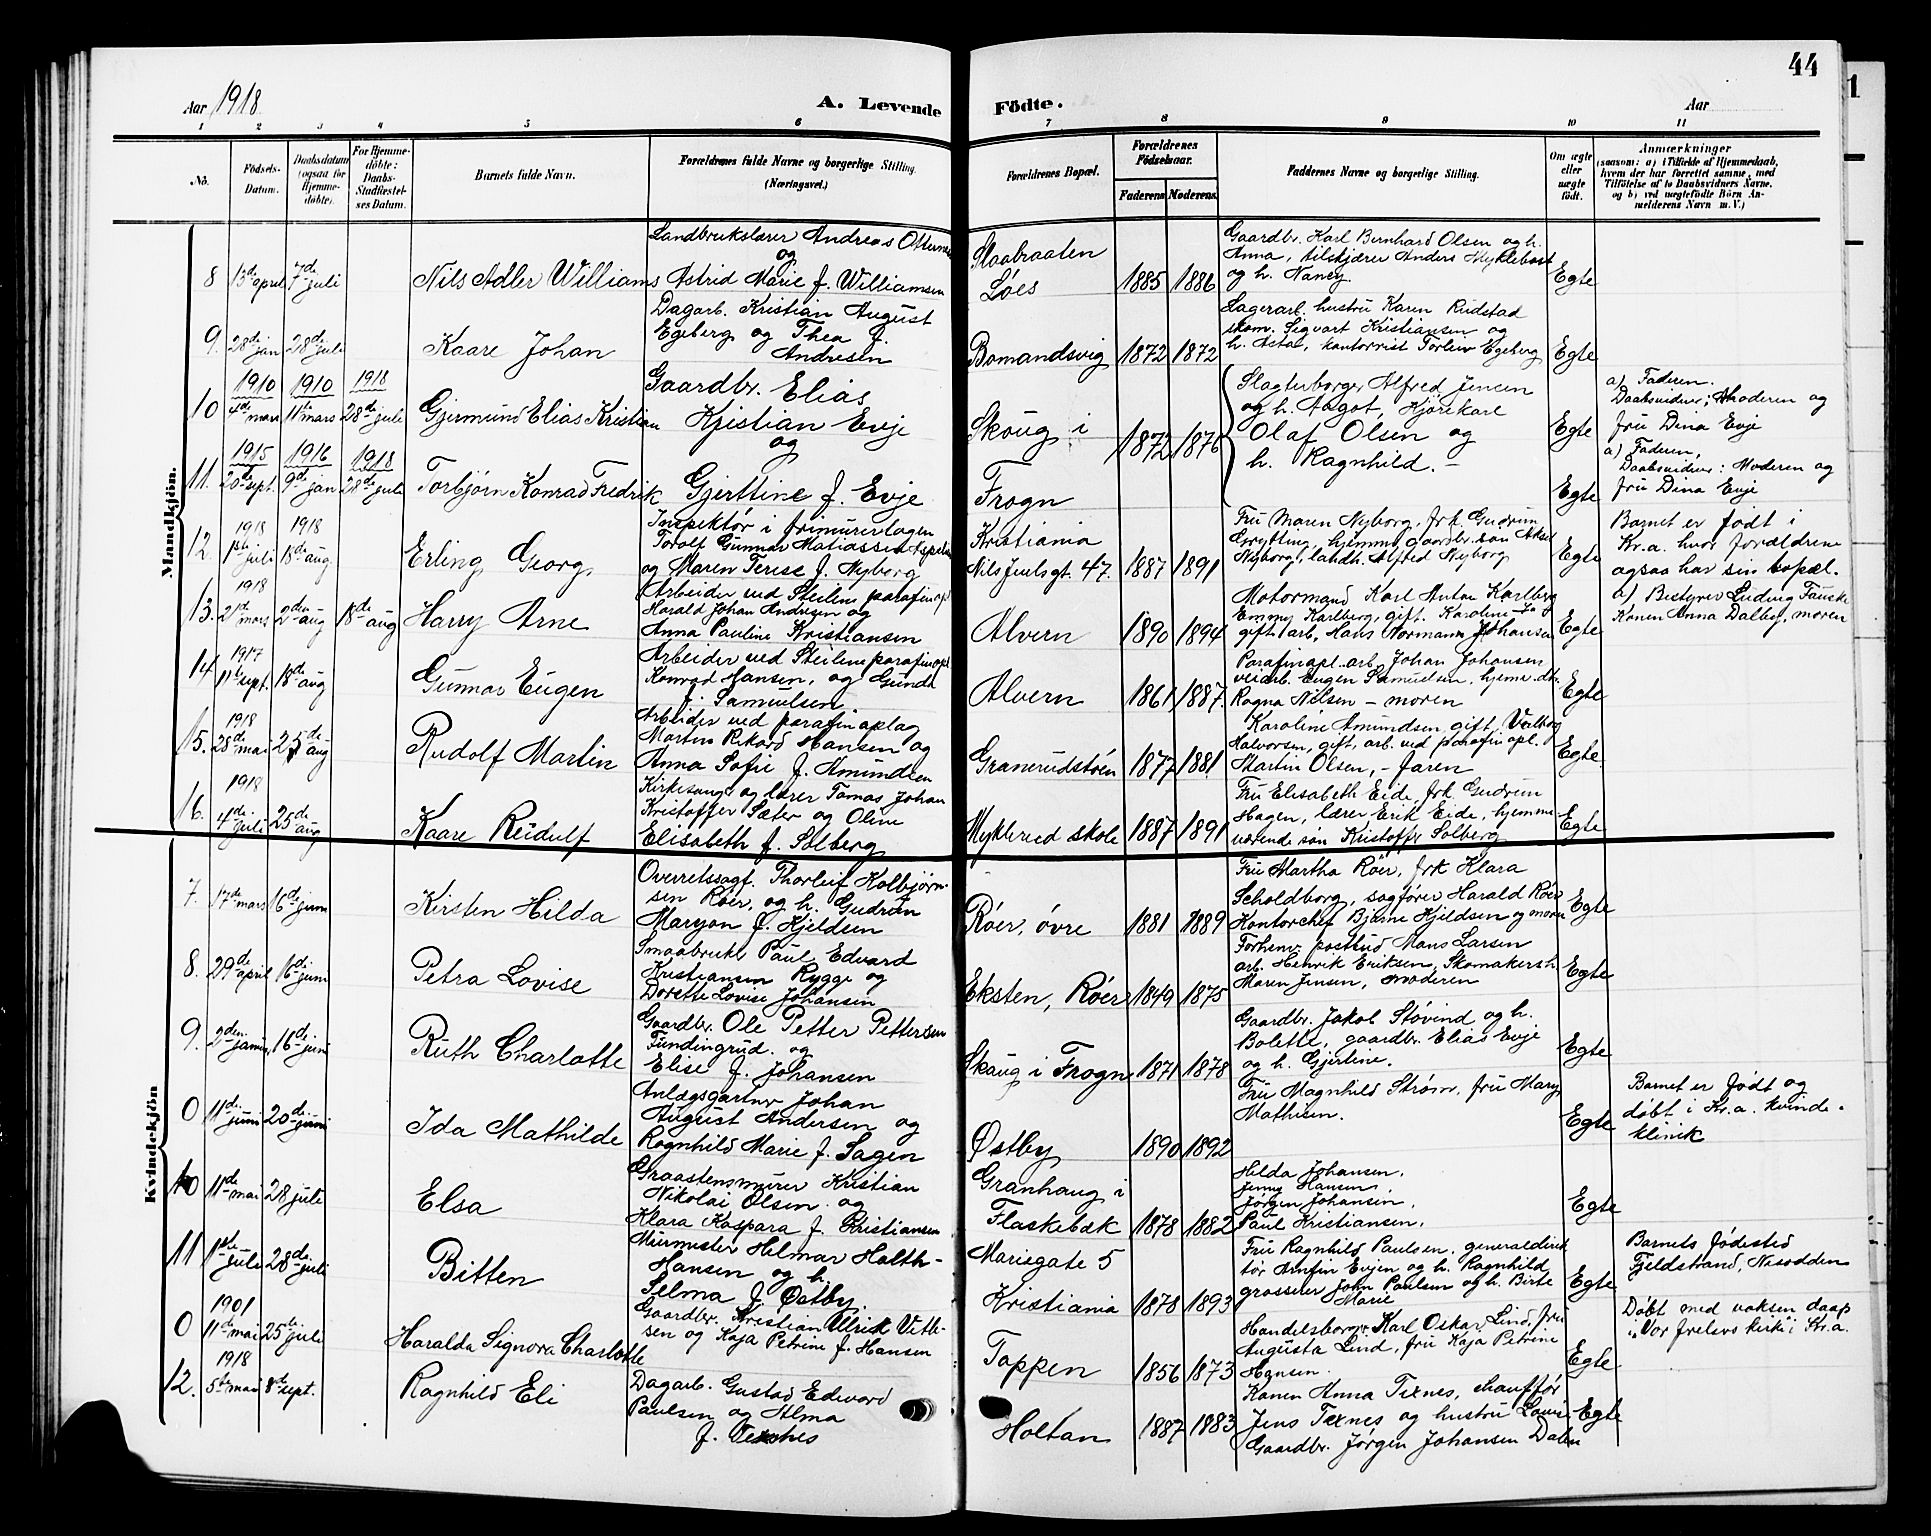 44
Aar 1918
A. Levende
Födte.
Aar
1 2 3 4 5 6 7 8 9 10 11
No.
Födsels-
Datum.
Daabsdatum
(ogsaa for
Hjemme-
döbte).
For Hjemme-
döbte:
Daabs-
Stadfæstel-
ses Datum.
Barnets fulde Navn.
Forældrenes fulde Navne og borgerlige Stilling.
(Næringsvei.)
Forældrenes Bopæl.
Forældrenes
Födselsaar.
Faderens. Moderens.
Faddernes Navne og borgerlige Stilling.
Om ægte
eller
uægte
födt.
Anmærkninger
(saasom: a) i Tilfælde af Hjemmedaab,
hvem der har forrettet samme, med
Tilföielse af to Daabsvidners Navne,
og b) ved uægtefödte Börn An-
melderens Navn m. V.)
Mandkjön.
8 13de april 7de juli
Nils Adler Williams
Landbrukslærer Andreas
og
Astrid Marie f. Williamsen
Slaabraaten
Löes
1885 1886
Gaardbr. Karl Bernhard Olsen og h.
Anna, tilskjærer Anders Myklebost
og h. Nancy.
Egte
9. 28de jan 28de juli
Kaare Johan
Dagarb. Kristian August
Egeberg og Thea f.
Andresen
Bomandsvig
1872 1872
Lagerarb. hustru Karen Rudstad
skom. Sigvart Kristiansen og
h. Asta, kontorrist Torleiv Egeberg
Egte
1910 1910 1918
10 4de mars 11te mars 28de juli
Gjermund Elias Kristian
Gaardbr. Elias
Kristian Evje
og
Skoug i
1872 1876
Slagterborger Alfred Jensen
og h. Aagot, Kjörekarl
Olaf Olsen og
h. Ragnhild. -
Egte
a) Faderen.
Daabsvidner; Moderen og
fru Dina Evje
1915 1916 1918
11. 20de sept. 9de jan 28de juli
Torbjörn Konrad Fredrik
Gjertine f. Evje
Frogn
Egte
a) Faderen,
Daabsvidner: Moderen og
fru Dina Evje
1918 1918
12. 1ste juli 18de aug.
Erling Georg
Inspektör i frimurerlogen
Torolf Gunnar Matiassen
og Maren Terese f. Nyborg
Kristiania
Nils Juulsgt. 47.
1887 1891
Fru Maren Nyborg, frk. Gudrun
Grytting, hjemmev. gaardbr. sön Aksel
Nyborg, landh. Alfred Nyborg
Egte
Barnet er födt i
Kr.a. hvor forældrene
ogsaa har sin bopæl.
1918
13. 21de mars 2den aug 18de aug
Harry Arne
Arbeider ved Steilene parafinopl
Harald Johan Andresen og
Anna Pauline Kristiansen
Alvern
1890 1894
Motormand Karl Anton Karlberg
Emmy Karlberg, gift. Karoline
gift arb, Hans Normann Johansen
Egte
a) Bestyrer Ludvig Fauske
Konen Anna Dalby, moren
1917
14 11te sept. 18de aug
Gunnar Eugen
Arbeider ved Steilene parafinopl
Konrad Hansen, og Gunda
f. Samuelsen
Alvern
1861 1887
Parafinopl. arb. Johan Johansen
veiarb. Eugen Samuelsen, hjemv. dtr.
Ragna Nilsen - moren
Egte
1918
15. 28de mai 25de aug
Rudolf Martin
Arbeider ved parafinoplag
Martin Rikard Hansen og
Anna Sofie f. Amundsen
Granerudstöen
1877 1881
Karoline Amundsen gift, Valborg
Halvorsen, gift, arb. ved parafinopl.
Martin Olsen, - faren
Egte
1918
16. 4de juli 25de aug
Kaare Reidulf
Kirkesanger og lærer Tomas Johan
Kristoffer Sæter og Oline
Elisabeth f. Solberg
Myklerud skole
1887 1891
Fru Elisabeth Eide, frk Gudrun
Hagen, lærer Erik Eide, hjemme
værende sön Kristoffer Solberg
Egte
Kvindekjön
7. 17de mars 16de juni
Kirsten Hilda
Overretssagf. Thorleif Kolbjörn-
sen Röer, og h. Gudrun
Maryon f. Kjeldsen
Röer, övre
1881 1889
Fru Martha Röer, frk Klara
Scholdborg, sagförer Harald Röer
Kontorchef Bjarne Kjeldsen og moren
Egte
8. 29de april 16de juni
Petra Lovise
Smaabruker Paul Edvard
Kristiansen Rygge og
Dorette Lovise Johansen
Eksten, Röer
1849 1875
Forhenv. postbud Hans Larsen
arb. Henrik Eriksen, Skomakersh.
Maren Jensen, moderen
Egte
9. 2den januar, 16de juni
Ruth Charlotte
Gaardbr. Ole Petter Pettersen
Fundingrud. og
Elise f. Johansen
Skaug i Frogn
1871 1878
Gaardbr. Jakob Stövind og h.
Bolette, gaardbr. Elias Evje
og h. Gjertine.
Egte
0 11de juni 20de juni
Ida Mathilde
Anlægsgartner Johan
August Andersen og
Ragnhild Marie f. Sagen
Østby
1890 1892
Fru Magnhild Ström, fru Mary
Mathisen.
Egte
Barnet er födt og
döbt i Kr.a. kvinde-
klinik
10 11de mai 28 juli
Elsa
Graastensmurer Kristian
Nikolai Olsen og
Klara Kaspara f. Kristiansen
Granhaug i
Flaskebæk
1878 1882
Hilda Johansen,
Jenny Hansen,
Jörgen Johansen,
Paul Kristiansen,
Egte
11 1ste juli 28de juli
Bitten
Murmester Helmar Holth-
Hansen og h.
Selma f. Østby
Marisgate 5
Kristiania
1878 1893
Fru Ragnhild Paulsen, generaldirek
tör Arnfin Evjen og h. Ragnhild
grosserer John Paulsen og h. Birte
Marie
Egte
Barnets födested
Fjeldstrand, Nesodden
1901
0 11de mai 25te juli
Haralda Signora Charlotte
Gaardbr. Kristian Ulrik Vetle-
sen og Kaja Petrine f. Hansen
Toppen
1856 1873
Handelsborger Karl Oskar Lind, fru
Augusta Lind, fru Kaja Petrine
Hansen.
Egte
Döbt med voksen daap
i "Vor frelsers kirke" i Kr.a.
1918
12. 5te mai 8de sept.
Ragnhild Eli
Dagarb. Gustav Edvard
Paulsen og Alma
f.
Holtan
1887 1883
Konen Anna Texnes, chauffør
Jens Texnes og hustru Lovise
Gaardbr. Jörgen Johansen Dalen
Egte